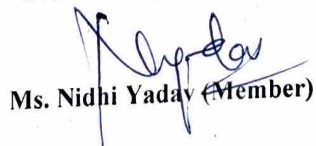 Ms. Nidhi Yadav (Member)